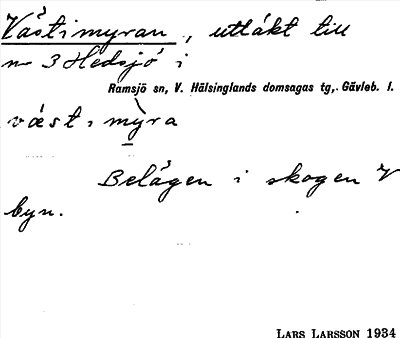 Västimyran, utläkt till
nr 3 Hedsjö i
Ramsjö sn, V. Hälsinglands domsagas tg, Gävleb. l.
væst i mỳra
Belägen i skogen V
byn.
LARS LARSSON 1934